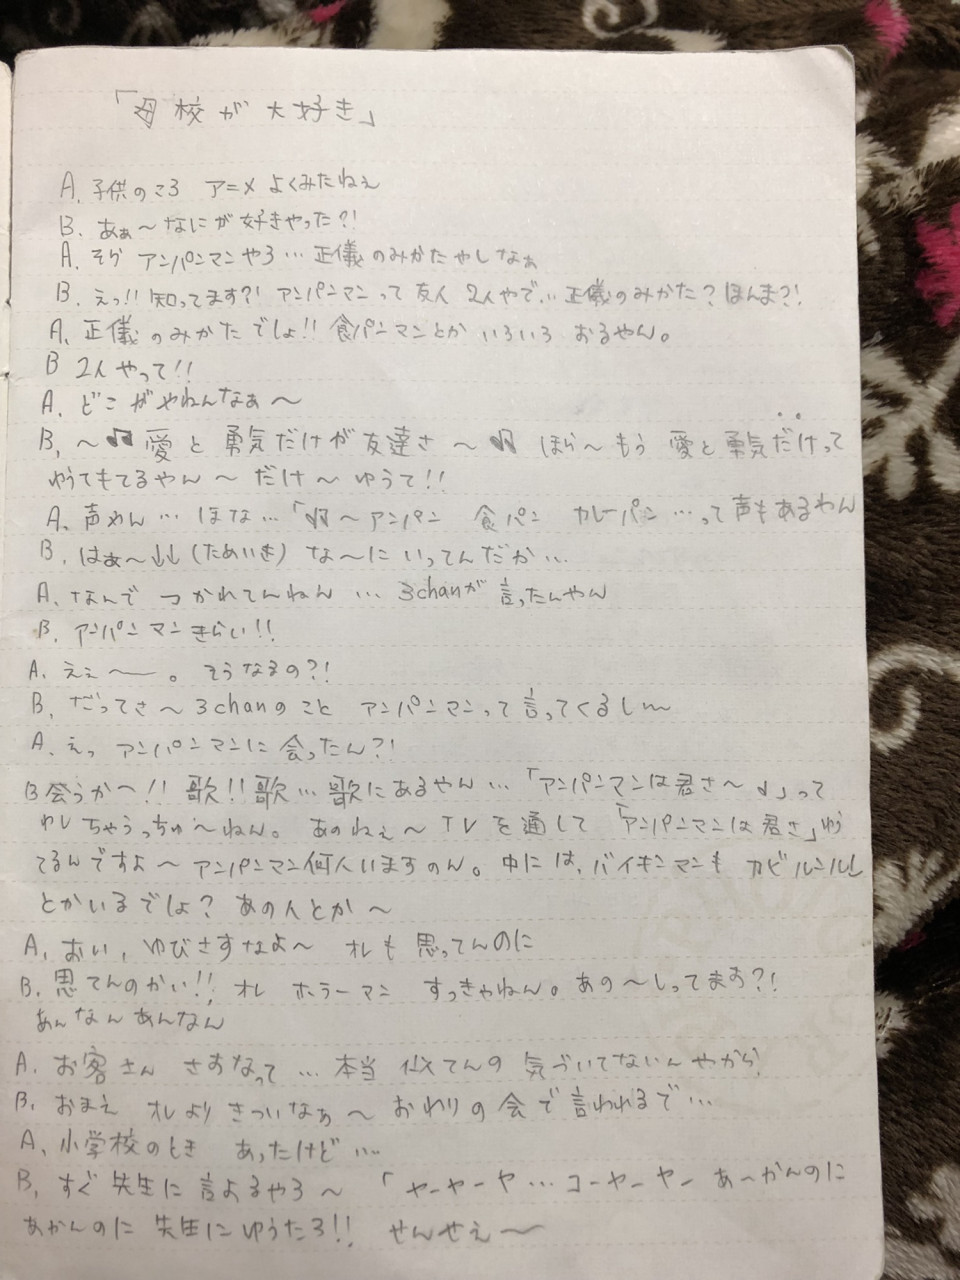 「母校が大好き」
A. 子供のころ アニメ よくみたねぇ
B. あぁ〜なにが好きやった?!
A. そら アンパンマンやろ… 正儀のみかたやしなぁ
B. えっ!! 知ってます?! アンパンマンって 友人 2人やで… 正儀のみかた? ほんま?!
A. 正儀のみかたでしょ!! 食パンマンとか いろいろ おるやん。
B 2人やって!!
A. どこがやねんなぁ〜
B, 〜♫ 愛と勇気だけが友達さ〜♫ ほら〜もう 愛と勇気だけって
ゆうてもてるやん〜だけ〜ゆうて!!
A. 声めん… ほな…「♫〜アンパン 食パン カレーパン…って声もあるわん
B. はぁ〜↓↓(ためいき) な〜にいってんだか…
A. なんで つかれてんねん … 3chanが 言ったんやん
B. アンパンマンきらい!!
A. ええ〜。そうなるの?!
B. だってさ〜3chanのこと アンパンマンって言ってくるし〜
A. えっ アンパンマンに 会ったん?!
B会うか〜!! 歌!!歌…歌にあるやん…「アンパンマンは君さ〜♩」って
わしちゃうっちゅ〜ねん。あのねぇ〜TVを通して「アンパンマンは君さ」ゆう
てるんですよ〜アンパンマン何人いますのん。中には、バイキンマンも カビルンルン
とかいるでしょ? あの人とか〜
A, おい, ゆびさすなよ〜 オレも 思ってんのに
B. 思てんのかい!! オレ ホラーマン すっきゃねん。あの〜しってます?!
あんなんあんなん
A. お客さん さすなって… 本当 似てんの 気づいてないんやから
B. おまえ オレより きついなぁ〜 おわりの会で言われるで…
A, 小学校のとき あったけど…
B, すぐ 先生に 言よるやろ〜 「ヤーヤーヤ…コーヤーヤー あ〜かんのに
あかんのに 先生にゆうたろ!! せんせえ〜